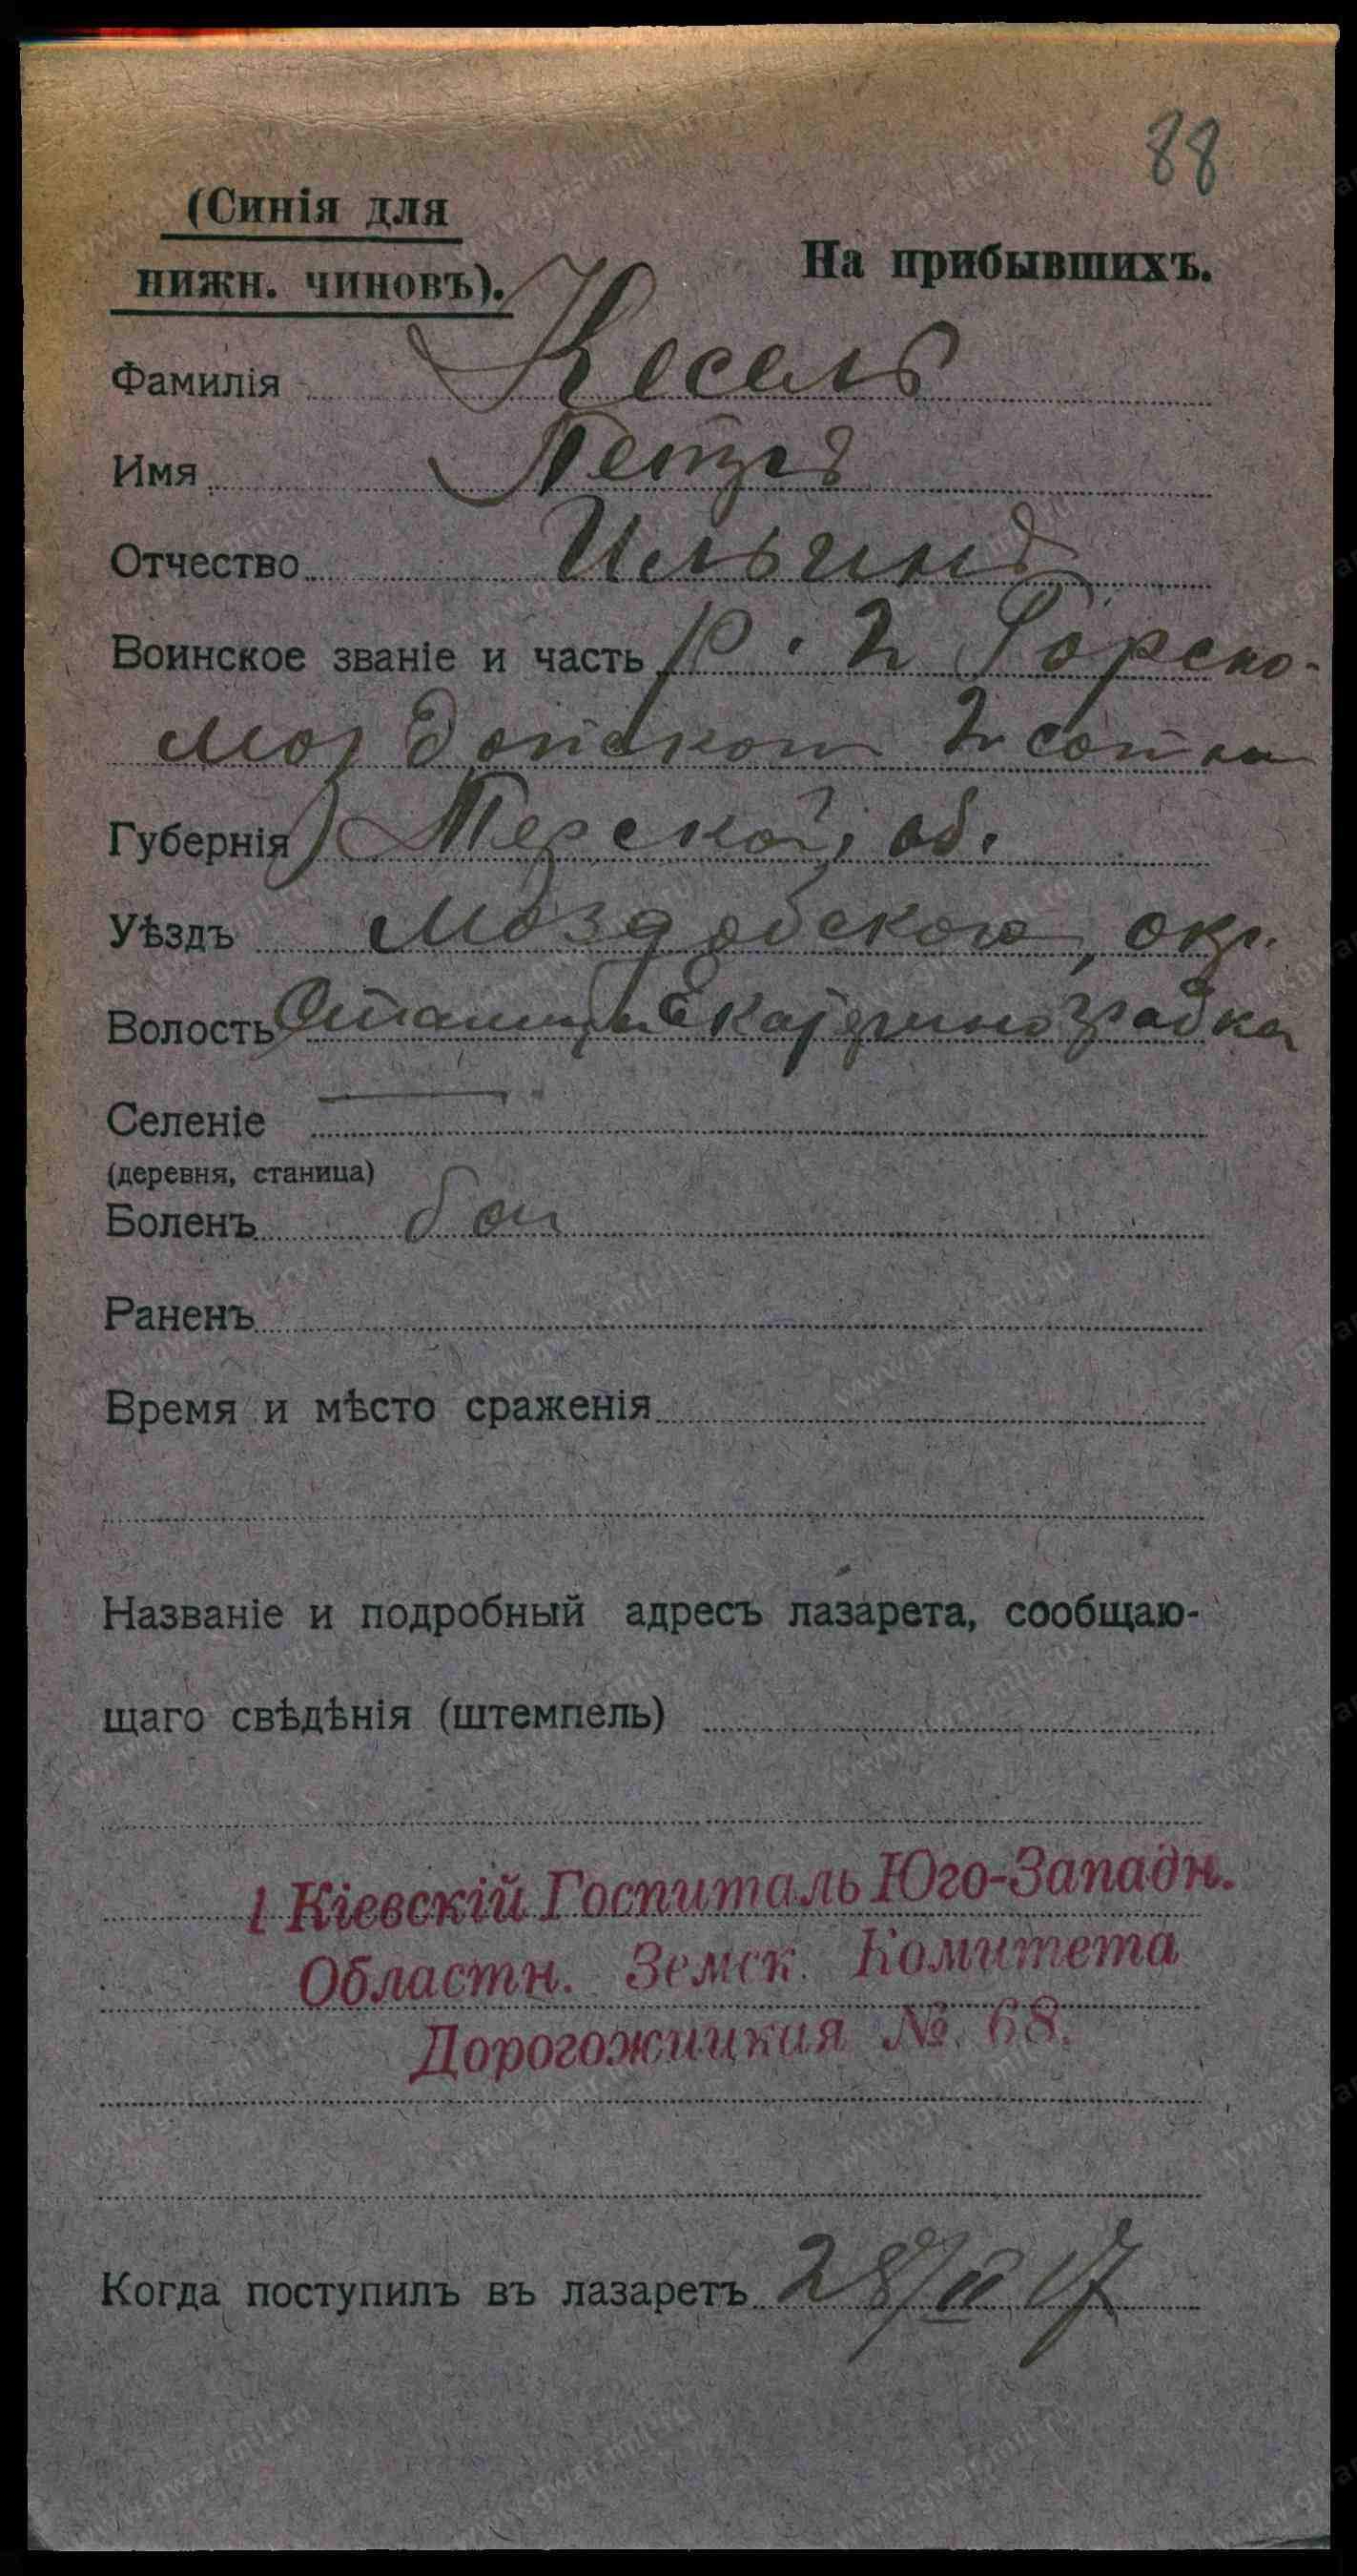 88
(Синія для
нижн. чиновъ).
На прибывшихъ.
Фамилія Кесель
Имя Петръ
Отчество Ильинъ
Воинское званіе и часть р. 2 Горско-
Моздокском 2 сотни
Губернія Терской об.
Уѣздъ Моздовского окр.
Волость Станица Екатериноградка
Селеніе —
(деревня, станица)
Боленъ бол
Раненъ
Время и мѣсто сраженія
Названіе и подробный адресъ лазарета, сообщаю-
щаго свѣдѣнія (штемпель)
1 Кіевскій Госпиталь Юго-Западн.
Областн. Земск. Комитета
Дорогожицкая № 68.
Когда поступилъ въ лазаретъ 28/II 17